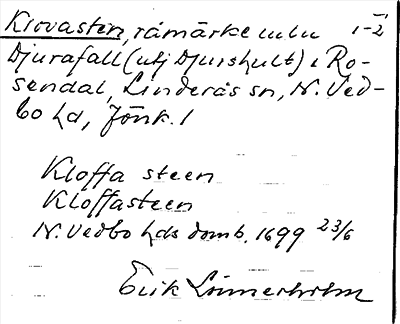 Klovasten, råmärke mln 1-2
Djurafall (utj Djurshult) i Ro-
sendal, Linderås sn, N. Ved-
bo hd, Jönk. l
Kloffa steen
Kloffasteen
N. Vedbo hds domb. 1699 23/6
Erik Linnerholm